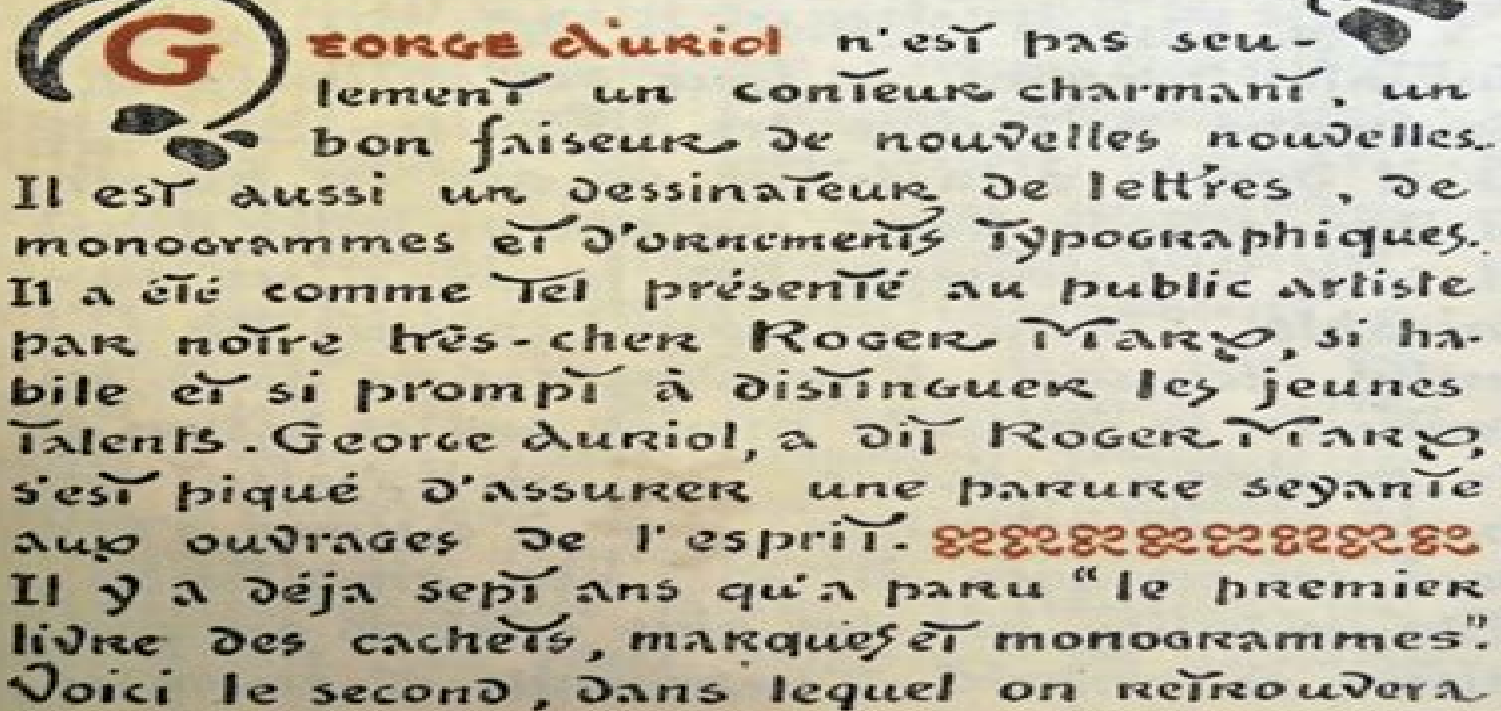 GEORGE AURIOL n'est pas seu-
lement un conteur charmant, un
bon faiseur de nouvelles nouvelles.
Il est aussi un dessinateur de lettres, de
monogrammes et d'ornements typographiques.
Il a été comme tel présenté au public artiste
par notre très-cher Roger Marx, si ha-
bile et si prompt à distinguer les jeunes
talents. George Auriol, a dit Roger Marx,
s'est piqué d'assurer une parure seyante
aux ouvrages de l'esprit.
Il y a déja sept ans qu'a paru "le premier
livre des cachets, marques et monogrammes".
Voici le second, dans lequel on retrouvera